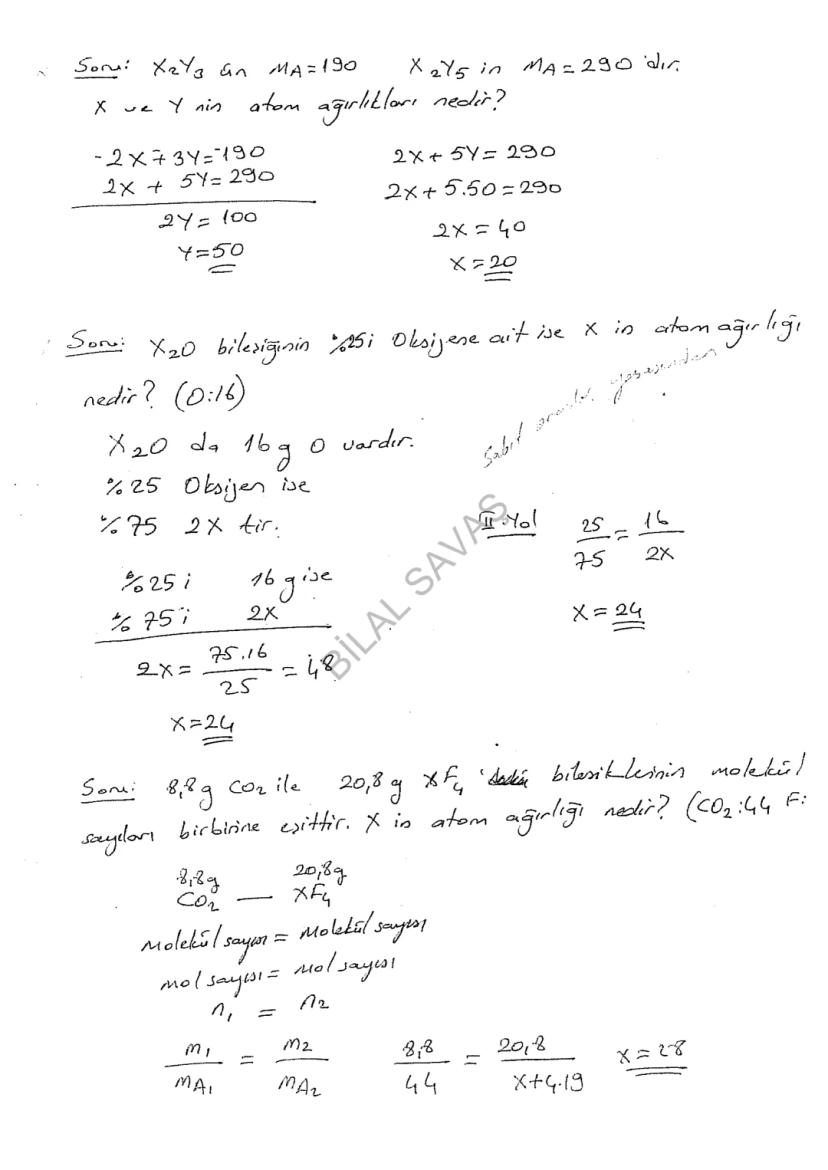 Soru: X2Y3 ün MA=190 X2Y5 in MA=290 'dır.
X ve Y nin atom ağırlıkları nedir?
-2X∓3Y=-190 2X+5Y=290
2X + 5Y=290 2X+5.50=290
2Y=100 2X=40
Y=50 X=20
Soru: X2O bileşiğinin %25i Oksijene ait ise X in atom ağırlığı
nedir? (O:16) Sabit oranlar yasasından
X2O da 16g O vardır.
%25 Oksijen ise
%75 2X tir. II.Yol 25/75 = 16/2X
%25i 16 g ise
%75i 2X X=24
2X= 75.16/25 = 48
X=24
BİLAL SAVAS
Soru: 8,8g CO2 ile 20,8 g XF4 bileşiklerinin molekül
sayıları birbirine eşittir. X in atom ağırlığı nedir? (CO2:44 F:
8,8g 20,8g
CO2 — XF4
Molekül sayısı = Molekül sayısı
mol sayısı = Mol sayısı
n1 = n2
m1/MA1 = m2/MA2 8,8/44 = 20,8/X+4.19 X=28